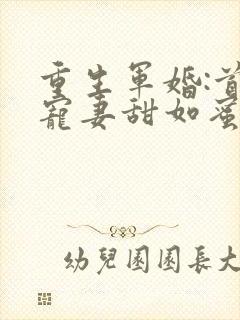 重生軍婚:首
寵妻甜如蜜
幼兒園園長大